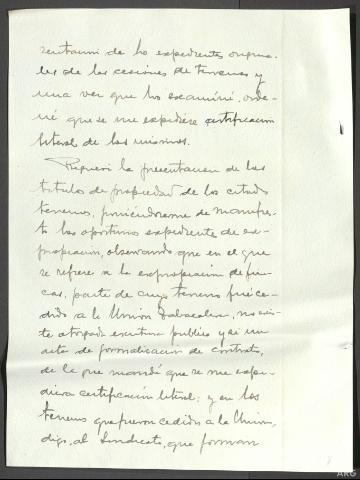 sentacion de los expedientes origina-
les de las cesiones de terrenos y
una vez que los examiné, orde-
né que se me expidiese certificacion
literal de los mismos.
Requerí la presentacion de los
titulos de propiedad de los citados
terrenos, poniéndoseme de manifies-
to los oportunos expedientes de ex-
propiacion, observando que en el que
se refiere a la expropiacion de fin-
cas, parte de cuyo terreno fué ce-
dido a la Unión Tabacalera, no exis-
te otorgada escritura publica y si un
acta de formalizacion de contrato,
de la que mandé que se me expi-
diera certificación literal; y en los
terrenos que fueron cedidos a la Union,
digo, al Sindicato, que forman
ARG